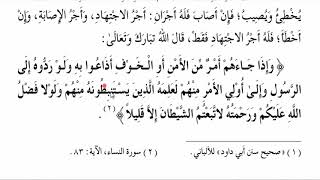 يُخْطِئُ وَيُصِيبُ؛ فَإِنْ أَصَابَ فَلَهُ أَجْرَانِ: أَجْرُ الاِجْتِهَادِ، وَأَجْرُ الإِصَابَةِ، وَإِنْ
أَخْطَأَ؛ فَلَهُ أَجْرُ الاِجْتِهَادِ فَقَطْ، قَالَ اللهُ تَبَارَكَ وَتَعَالَىٰ:
﴿ وَإِذَا جَاءَهُمْ أَمْرٌ مِّنَ الأَمْنِ أَوِ الْخَوْفِ أَذَاعُوا بِهِ وَلَوْ رَدُّوهُ إِلَى
الرَّسُولِ وَإِلَىٰ أُوْلِي الأَمْرِ مِنْهُمْ لَعَلِمَهُ الَّذِينَ يَسْتَنبِطُونَهُ مِنْهُمْ وَلَوْلا فَضْلُ
اللهِ عَلَيْكُمْ وَرَحْمَتُهُ لاتَّبَعْتُمُ الشَّيْطَانَ إِلاَّ قَلِيلاً ﴾.(٢)
(١) «صحيح سنن أبي داود» للألباني. (٢) سورة النساء، الآية: ٨٣.